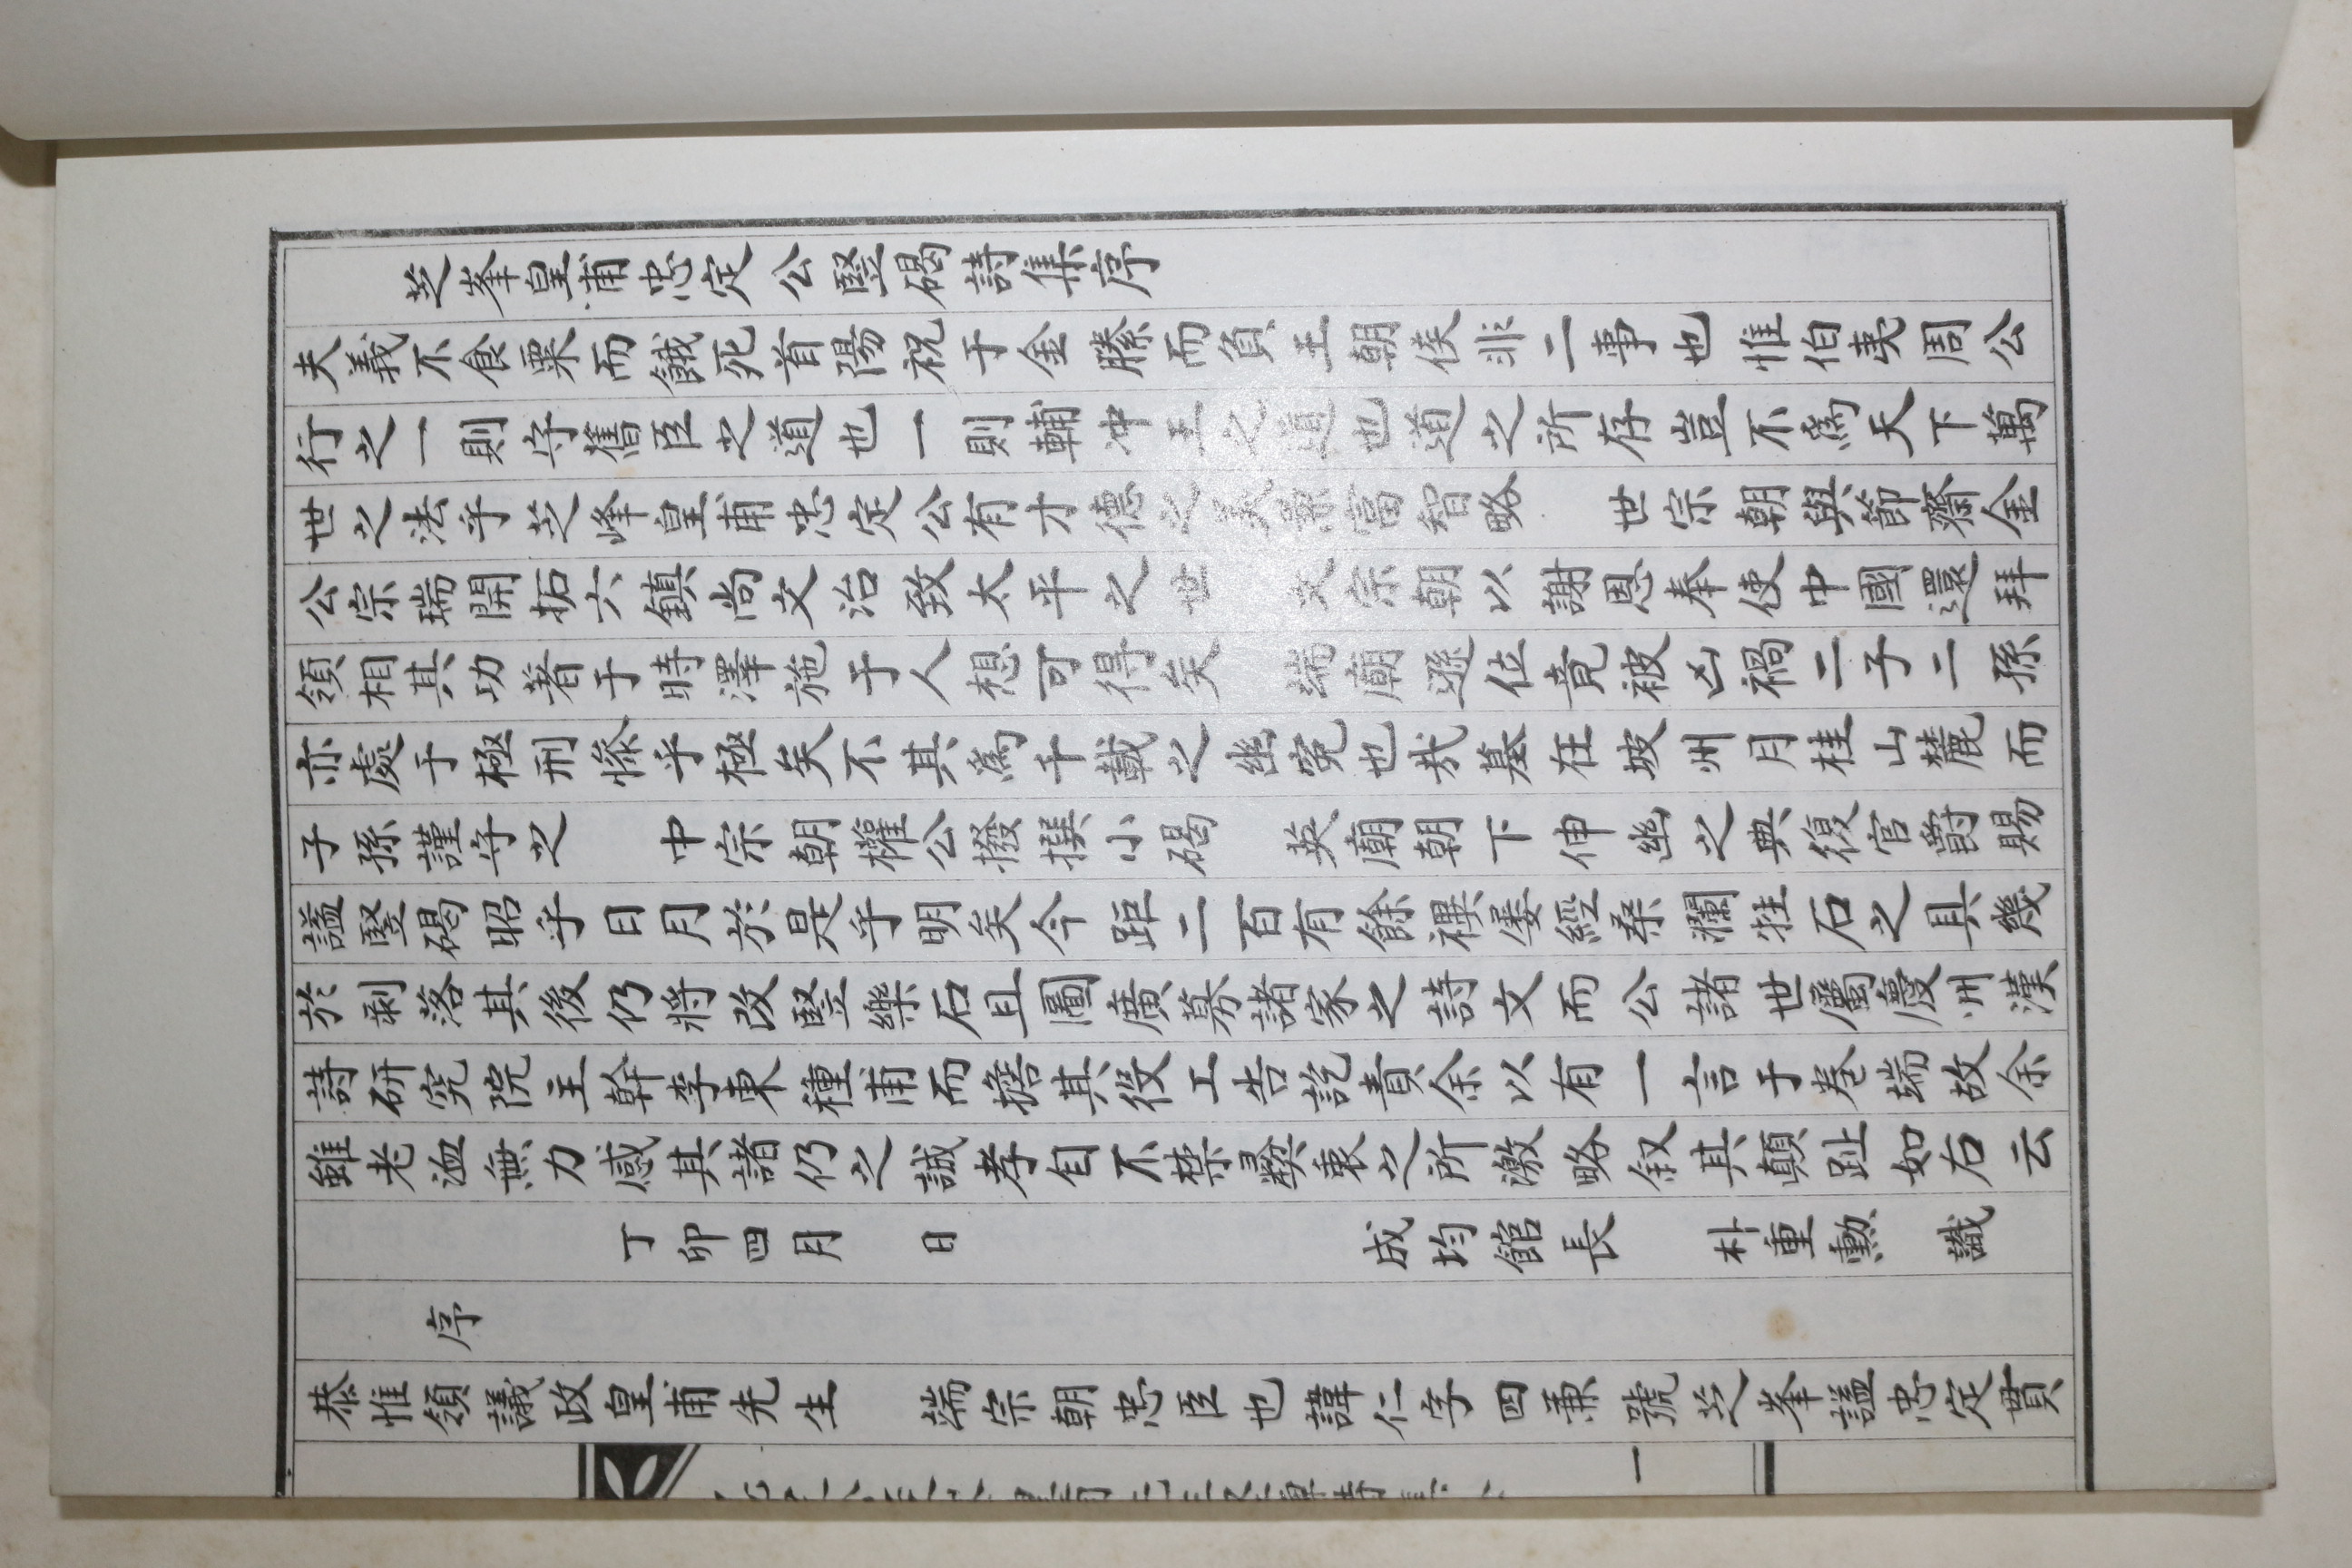 芝峯皇甫忠定公竪碣詩集序
夫義不食粟而餓死首陽祝于金縢而負王朝侯非二事也惟伯夷周公
行之一則守舊臣之道也一則輔冲王之道也道之所存豈不爲天下萬
世之法乎芝峰皇甫忠定公有才德之美兼富智略　世宗朝與節齋金
公宗瑞開拓六鎮尚文治致太平之世　文宗朝以謝恩奉使中國還拜
領相其功著于時澤施于人想可得矣　端廟遜位竟被凶禍二子二孫
亦處于極刑慘乎極矣不其爲千載之幽寃也哉墓在坡州月桂山麓而
子孫謹守之　中宗朝權公撥撰小碣　英廟朝下伸幽之典復官爵賜
謚竪碣昭乎日月於是乎明矣今距二百有餘禩屢經桑瀾牲石之具幾
於剥落其後仍將改竪樂石且圖廣募諸家之詩文而公諸世屬慶州漢
詩研究院主幹李東種甫而擔其役工告訖責余以有一言于卷端故余
雖老洫無力感其諸仍之誠孝自不禁彛衷之所激略叙其顛趾如右云
丁卯四月　日　成均館長　朴重勳　識
序
恭惟領議政皇甫先生　端宗朝忠臣也諱仁字四兼號芝峯謚忠定貫
一